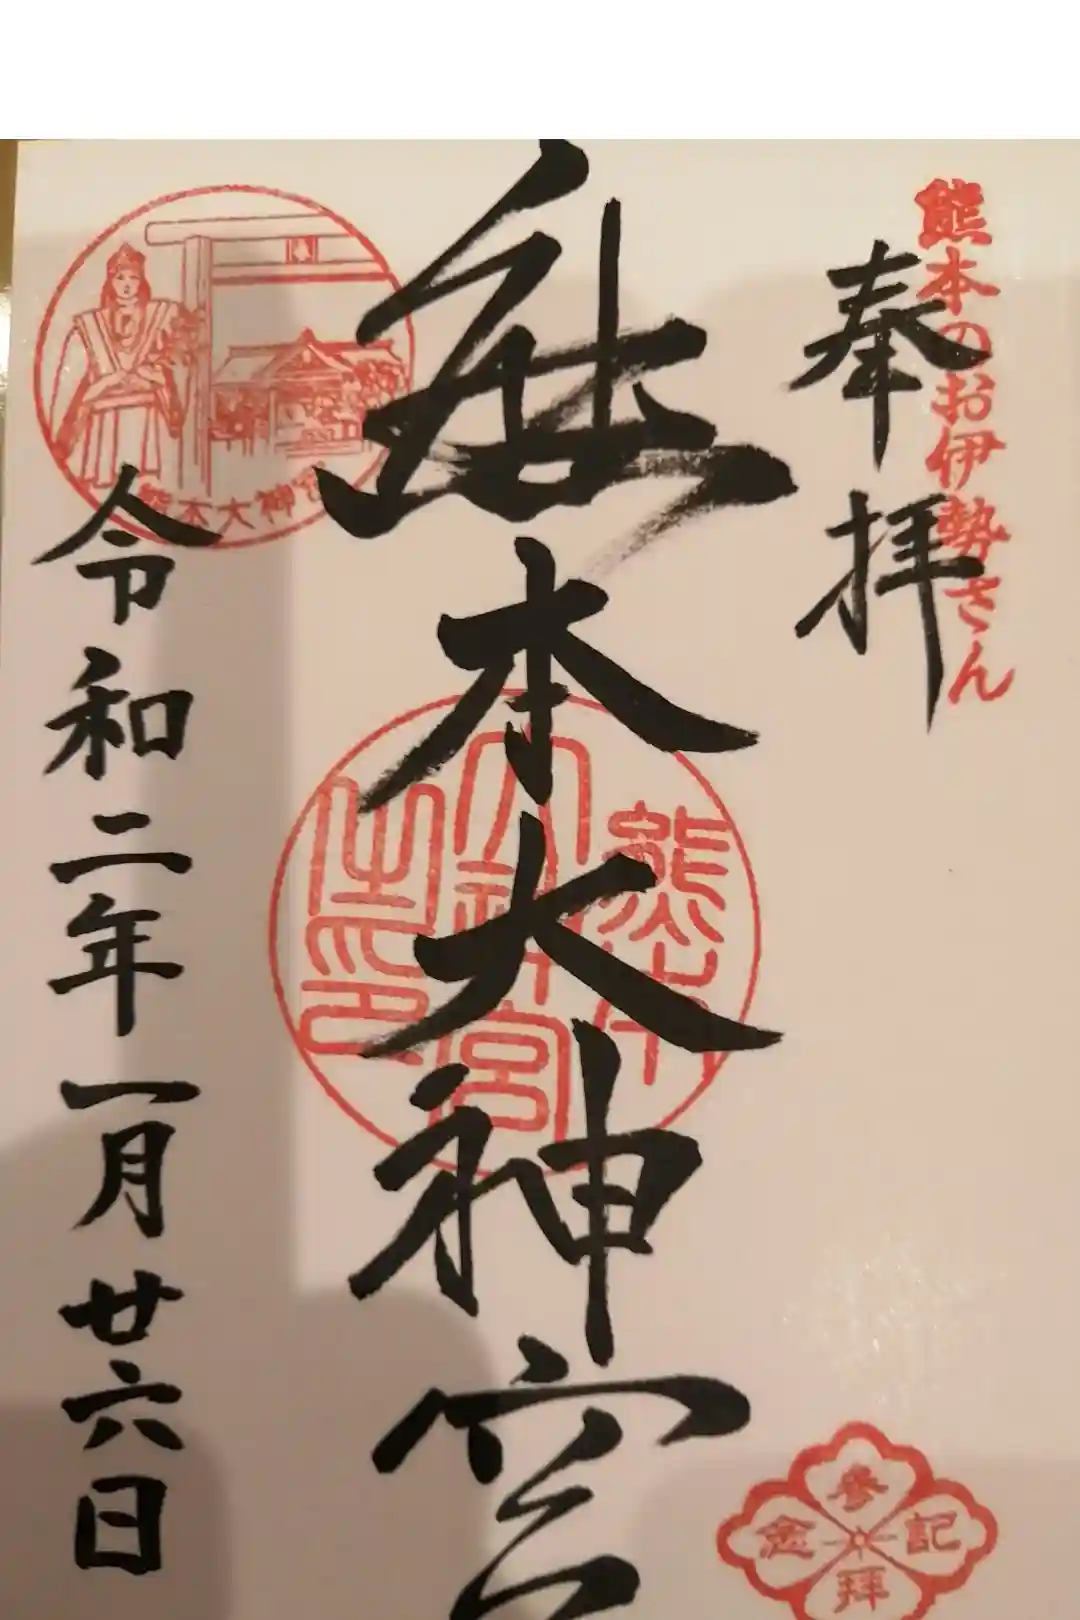 熊本のお伊勢さん
奉拝
熊本大神宮
熊本
大神宮
之印
熊本大神宮
令和二年一月廿六日
参拝記念